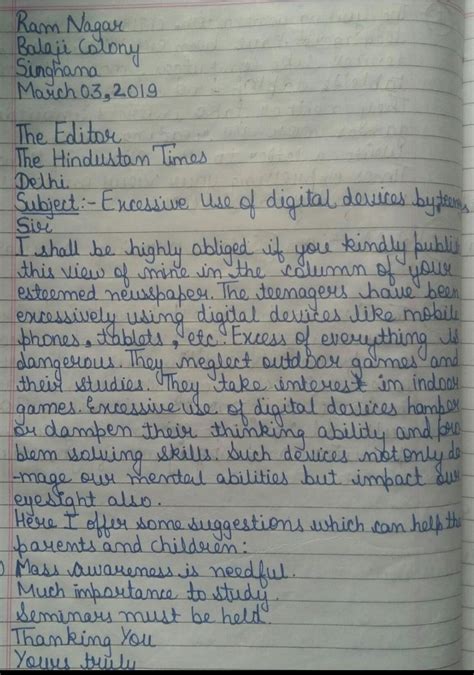 Ram Nagar
Balaji Colony
Singhana
March 03, 2019
The Editor
The Hindustan Times
Delhi
Subject:- Excessive Use of digital devices by teens
Sir
I shall be highly obliged if you kindly publis
this view of mine in the column of your
esteemed newspaper. The teenagers have been
excessively using digital devices like mobile
phones, tablets, etc. Excess of everything is
dangerous. They neglect outdoor games and
their studies. They take interest in indoor
games. Excessive use of digital devices hamper
or dampen their thinking ability and pro
blem solving skills. Such devices not only da
-mage our mental abilities but impact our
eyesight also.
Here I offer some suggestions which can help the
parents and children:
Mass awareness is needful.
Much importance to study.
Seminars must be held.
Thanking You
Yours truly